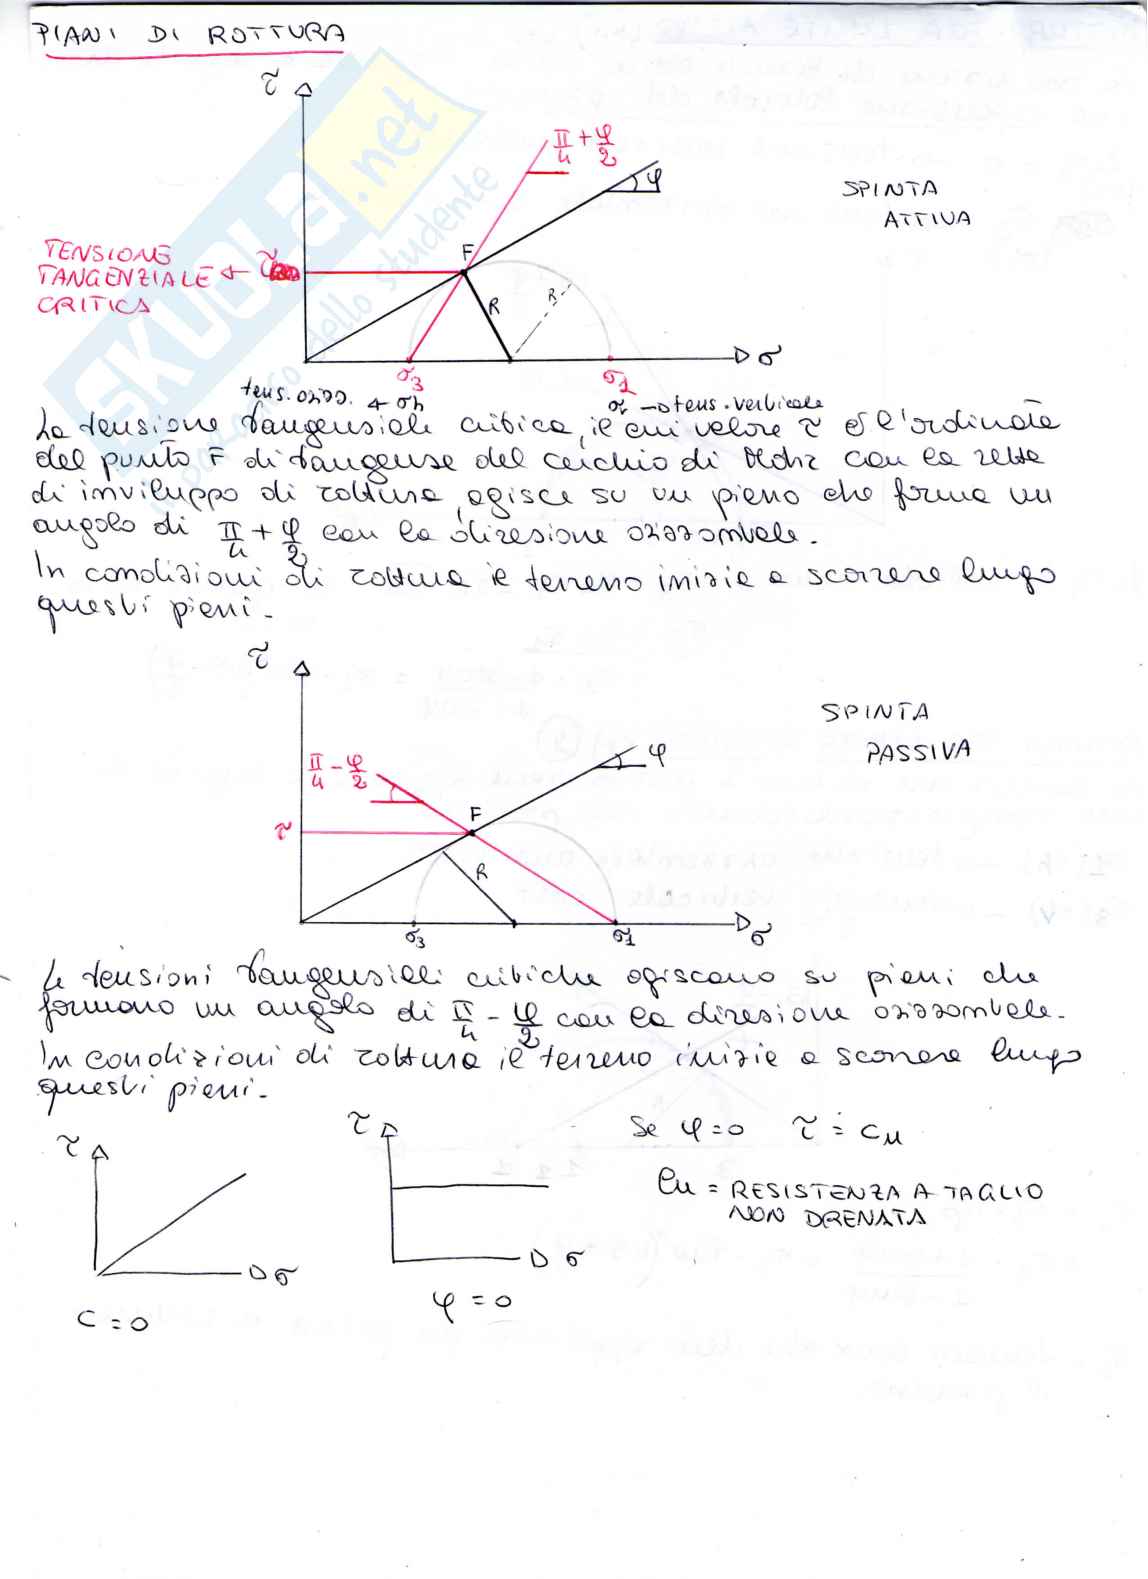 PIANI DI ROTTURA
τ
π/4 + φ/2
φ
SPINTA
ATTIVA
TENSIONE
TANGENZIALE ← τ
CRITICA
F
R
R
σ
σ3
σ1
tens. orizz. ← σh
σv → tens. verticale
La tensione tangenziale critica, il cui valore τ è l'ordinata
del punto F di tangenza del cerchio di Mohr con la retta
di inviluppo di rottura, agisce su un piano che forma un
angolo di π/4 + φ/2 con la direzione orizzontale.
In condizioni di rottura il terreno inizia a scorrere lungo
questi piani.
τ
SPINTA
PASSIVA
π/4 - φ/2
φ
F
τ
R
σ3
σ1
σ
Le tensioni tangenziali critiche agiscono su piani che
formano un angolo di π/4 - φ/2 con la direzione orizzontale.
In condizioni di rottura il terreno inizia a scorrere lungo
questi piani.
τ
τ
Se φ=0 τ = cu
Cu = RESISTENZA A TAGLIO
NON DRENATA
σ
σ
C=0
φ=0
SKUOLA.net
paradiso dello studente